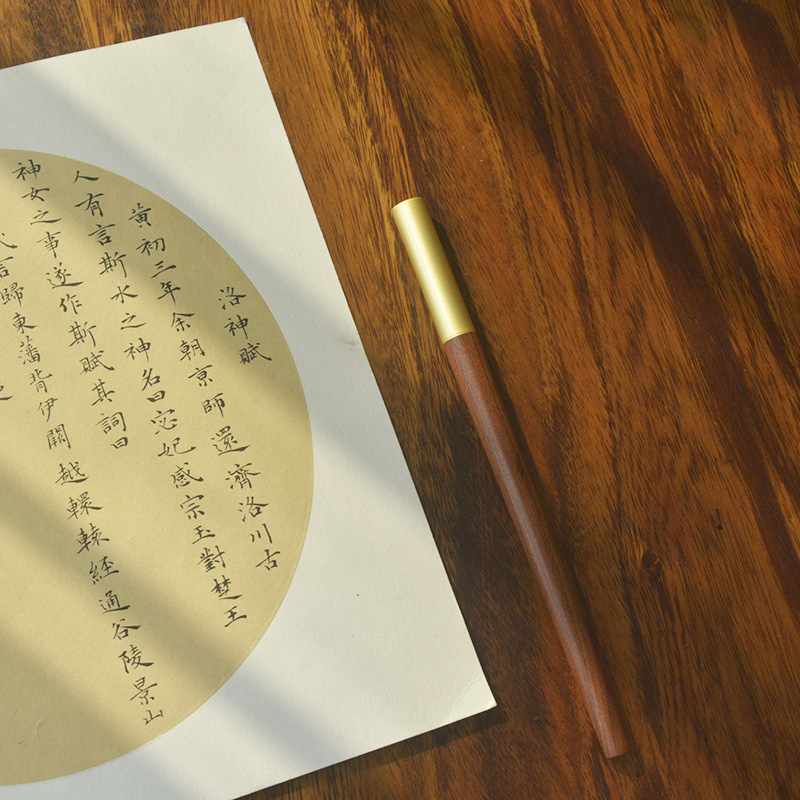 洛神賦
黃初三年余朝亰師還濟洛川古
人有言斯水之神名曰宓妃感宗玉對楚王
神女之事遂作斯賦其詞曰
言歸東藩背伊闕越轘轅経通谷陵景山